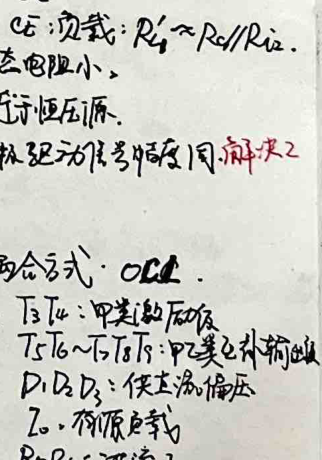 CE:负载:RL1'≈Rc//Ri2.
态电阻小、
近于恒压源.
极驱动信号幅度问.解决2
耦合方式.OCL.
T3T4:甲类激励级
T5T6~T7T8T9:甲乙类互补输出级
D1D2D3:供直流偏压
I0.有源负载